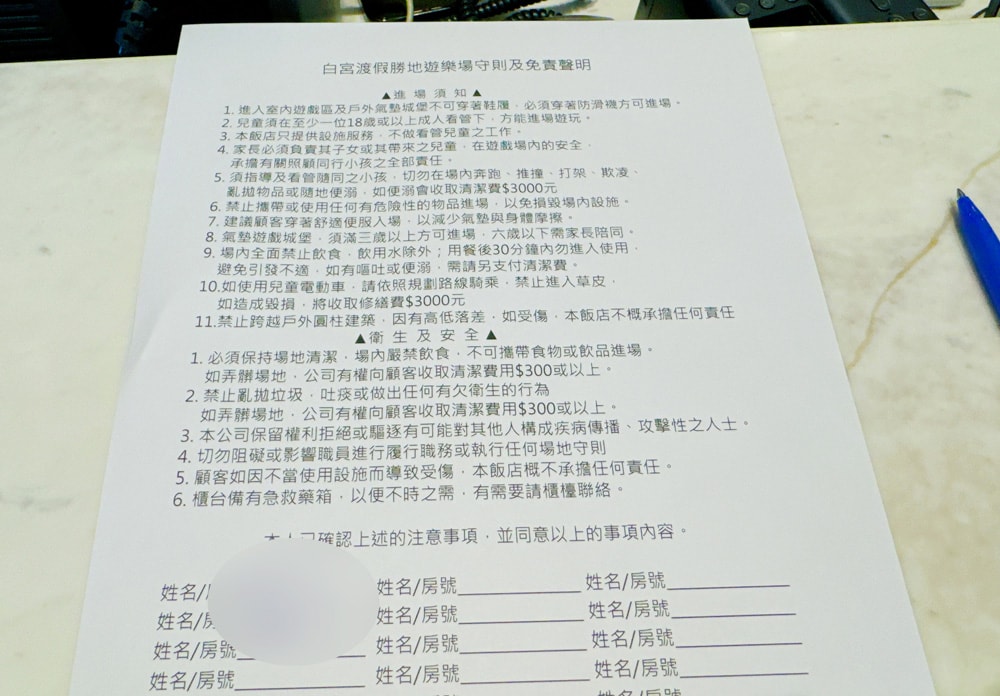 白宮渡假勝地遊樂場守則及免責聲明
▲進場須知▲
1. 進入室內遊戲區及戶外氣墊城堡不可穿著鞋履，必須穿著防滑襪方可進場。
2. 兒童須在至少一位18歲或以上成人看管下，方能進場遊玩。
3. 本飯店只提供設施服務，不做看管兒童之工作。
4. 家長必須負責其子女或其帶來之兒童，在遊戲場內的安全，
承擔有關照顧同行小孩之全部責任。
5. 須指導及看管隨同之小孩，切勿在場內奔跑、推撞、打架、欺凌、
亂拋物品或隨地便溺，如便溺會收取清潔費$3000元
6. 禁止攜帶或使用任何有危險性的物品進場，以免損毀場內設施。
7. 建議顧客穿著舒適便服入場，以減少氣墊與身體摩擦。
8. 氣墊遊戲城堡，須滿三歲以上方可進場，六歲以下需家長陪同。
9. 場內全面禁止飲食，飲用水除外；用餐後30分鐘內勿進入使用，
避免引發不適，如有嘔吐或便溺，需請另支付清潔費。
10.如使用兒童電動車，請依照規劃路線騎乘，禁止進入草皮，
如造成毀損，將收取修繕費$3000元
11.禁止跨越戶外圓柱建築，因有高低落差，如受傷，本飯店不概承擔任何責任
▲衛生及安全▲
1. 必須保持場地清潔，場內嚴禁飲食，不可攜帶食物或飲品進場。
如弄髒場地，公司有權向顧客收取清潔費用$300或以上。
2. 禁止亂拋垃圾，吐痰或做出任何有欠衛生的行為
如弄髒場地，公司有權向顧客收取清潔費用$300或以上。
3. 本公司保留權利拒絕或驅逐有可能對其他人構成疾病傳播、攻擊性之人士。
4. 切勿阻礙或影響職員進行履行職務或執行任何場地守則
5. 顧客如因不當使用設施而導致受傷，本飯店概不承擔任何責任。
6. 櫃台備有急救藥箱，以便不時之需，有需要請櫃檯聯絡。
確認上述的注意事項，並同意以上的事項內容。
姓名/ 姓名/房號 姓名/房號
姓名/ 姓名/房號 姓名/房號
姓名/房號 姓名/房號 姓名/房號
姓名/房號 姓名/房號 姓名/房號